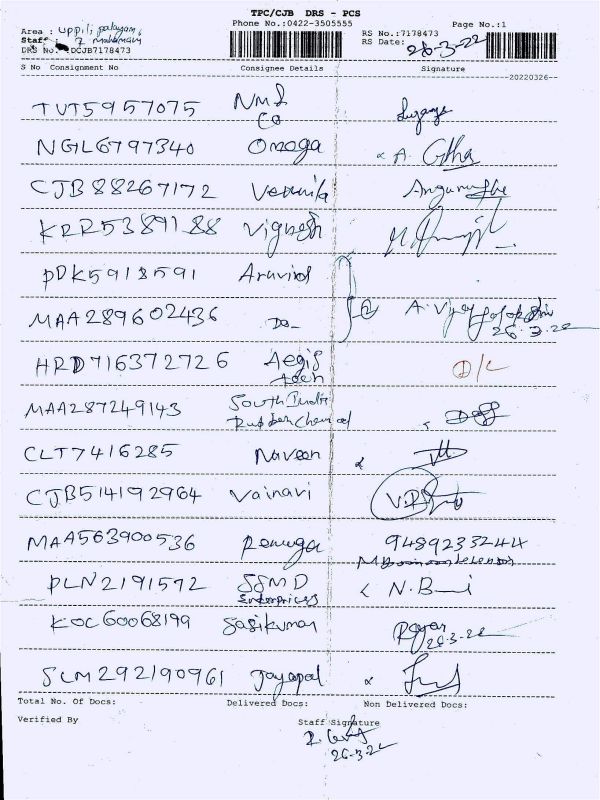 TPC/CJB DRS - PCS
Phone No.:0422-3505555
Page No.:1
Area : uppilipalayam,
Staff
DRS No. :DCJB7178473
RS No.:7178473
RS Date: 26-3-22
S No Consignment No Consignee Details Signature
20220326
TVT5957075 NMS
Co
NGL6797340 Omoga A.
CJB88267172
KRR5389188 Vignesh
PDK5918591 Aravind
MAA289602436 Do A. Vijay
26-3-22
HRD716372726 Aegis D/L
MAA287249143 South India
Rubber Chemical
CLT7416285 Naveen
CJB514192964 Vainavi
MAA563900536 Renuga 9489233244
PLN2191572 SSMD N.B
Enterprises
KOC60068199 Sasikumar
26-3-22
SLM292190961 Jayapal
Total No. Of Docs: Delivered Docs: Non Delivered Docs:
Verified By Staff Signature
26-3-22